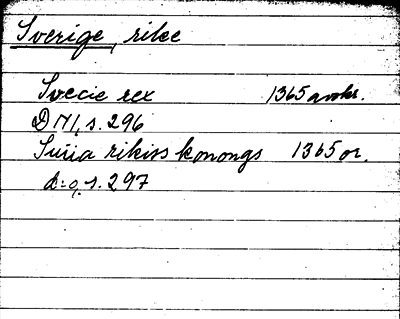 Sverige, rike
Svecie rex 1365 avskr.
DN I, s. 296
Suiia rikiss konongs 1365 or.
d:o, s. 297